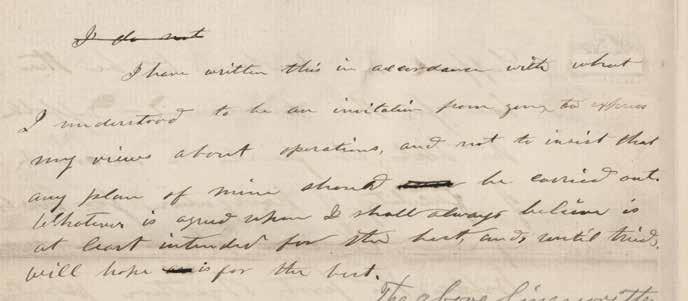 I do not
I have written this in accordance with what
I understood to be an invitation from you to express
my views about operations, and not to insist that
any plan of mine should be carried out.
Whatever is agreed upon I shall always believe is
at least intended for the best, and, until tried,
will hope is for the best.
The above